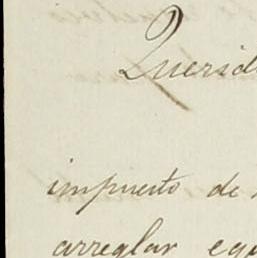 Querid
impuesto de
arreglar equ